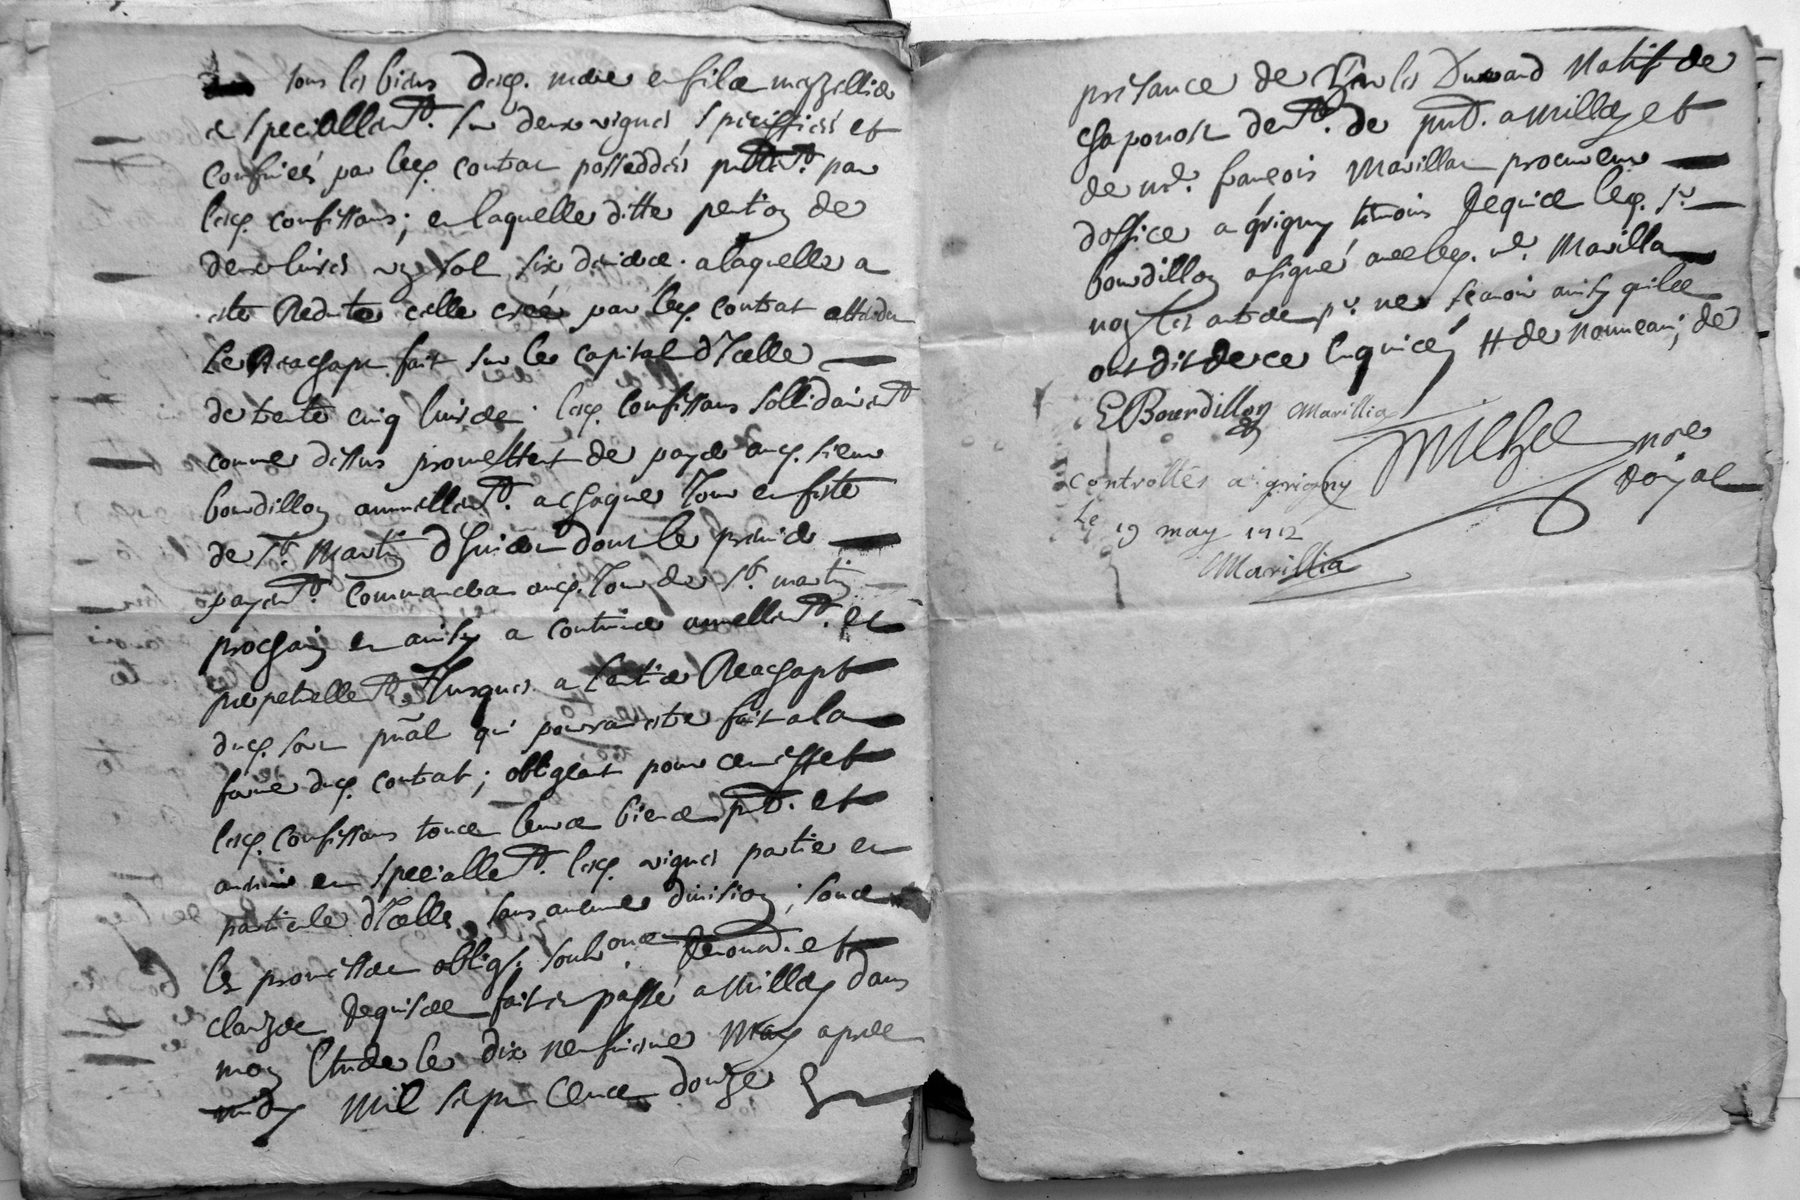 tous les biens desd. mere en fils mazellier
et speciallemt. sur deux vignes speciffiées et
confinées par led. contrat possedées pntemt. par
lesd. confessans; en laquelle ditte pention de
deux livres un sol six deniers. a laquelle a
esté Reduite celle créée par led. contrat attendu
le Reachapt fait sur le capital d'Icelle
de trente cinq livres. lesd. confessans sollidairemt
comme dessus promettent de payer aud. sieur
bourdillon annuellemt. a chaque Jour en feste
de St. Martin d'hiver dont le premier
payemt. commancera aud. Jour de St. martin
prochain en ainsy a continuer annuellemt. et
perpetuellemt Jusques a lentier Reachapt
dud. sort pnal qui pourra estre fait a la
forme dud. contrat; obligeant pour ce effet
lesd. confessans tous leurs biens pnts. et
advenir en speciallemt. lesd. vignes partie en
particule d'Icelles, sans aucune division; sous
les promesses oblig. soub. on Renond. et
clauzes Requises fait et passé a Millery dans
mon Etude le dix neufviesme May apres
midy Mil sept Cents douze
presance de Durand Natif de
chaponost demt. de pnt. a Millery et
de mr. françois Marillat procureur
d'office a grigny temoins Requis led. sr.
bourdillon a signé avec led. mr. Marillat
non les autres pr. ne scavoir ainsy quils
ont dit de ce Enquis # de nouveau; de
EBourdillon Marillia
Michel nore
Royal
Controllés a grigny
Le 19 may 1712
Marillia